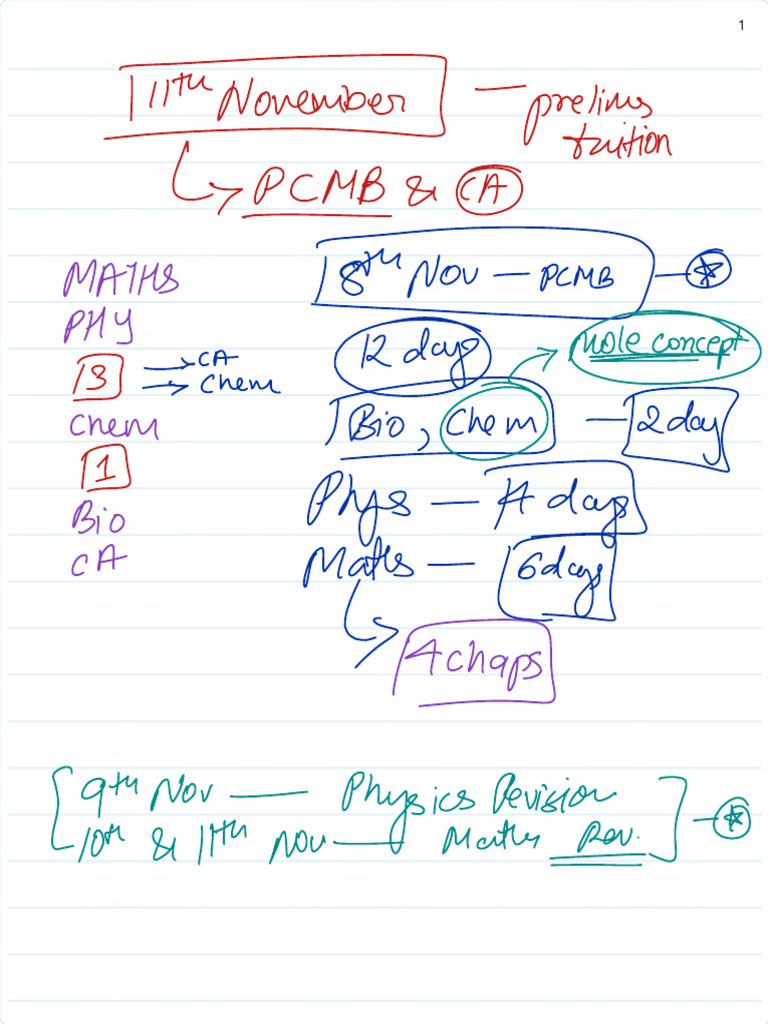 1
11th November — prelims
tuition
PCMB & CA
MATHS
PHY
13 → CA
→ Chem
Chem
1
Bio
CA
8th Nov — PCMB —
12 days → mole concept
Bio, Chem — 2 day
Phys — 4 days
Maths — 6 days
4 chaps
9th Nov — Physics Revision
10th & 11th Nov — Maths Rev.